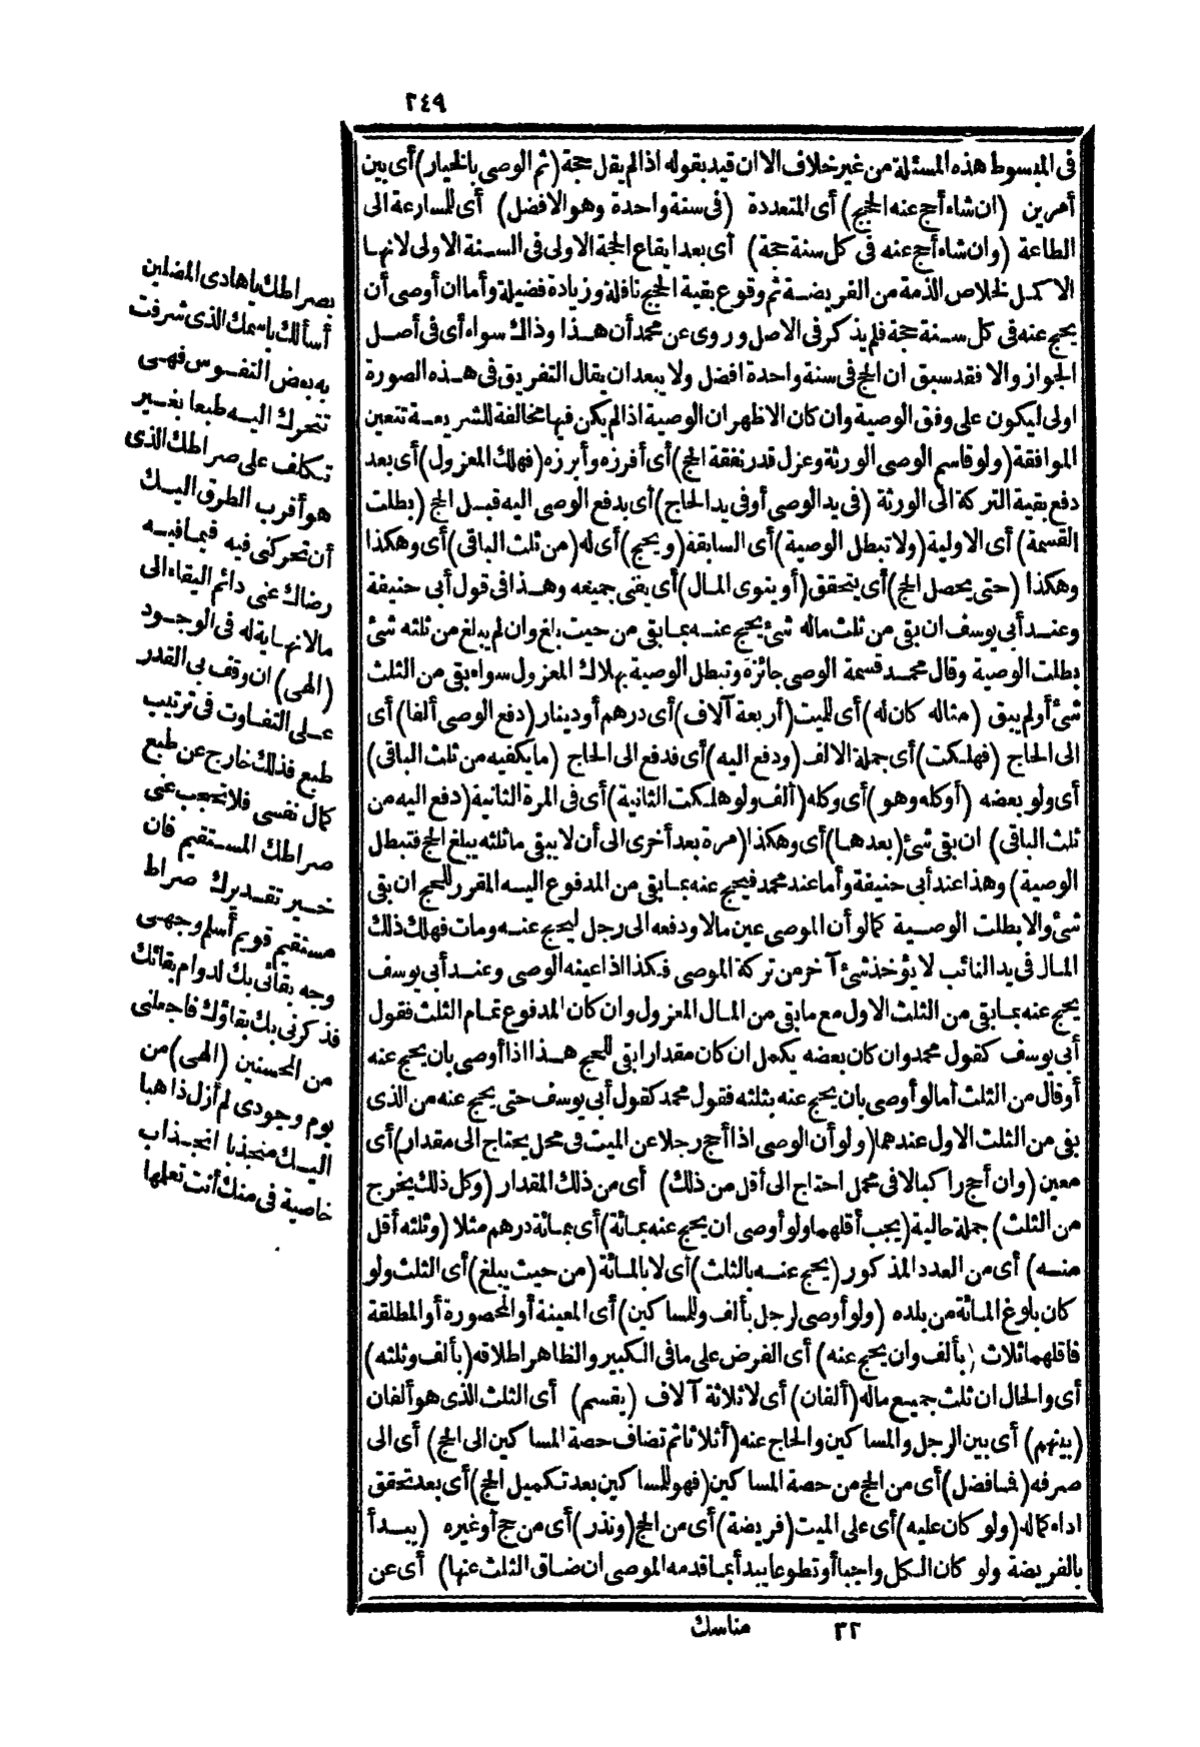 ٢٤٩
فى المبسوط هذه المسئلة من غير خلاف الا ان قيد بقوله اذا لم يقل حجة (ثم الوصى بالخيار) أى بين
أمرين (ان شاء أحج عنه الحجج) أى المتعددة (فى سنة واحدة وهو الافضل) أى للمسارعة الى
الطاعة (وان شاء أحج عنه فى كل سنة حجة) أى بعد ايقاع الحجة الاولى فى السنة الاولى لانها
الاكمل لخلاص الذمة من الفريضة ثم وقوع بقية الحجج نافلة وزيادة فضيلة وأما ان أوصى أن
يحج عنه فى كل سنة حجة فلم يذكر فى الاصل وروى عن محمد أن هذا وذاك سواء أى فى أصل
الجواز والا فقد سبق ان الحج فى سنة واحدة افضل ولا يبعد ان يقال التفريق فى هذه الصورة
اولى ليكون على وفق الوصية وان كان الاظهر ان الوصية اذا لم يكن فيها مخالفة للشريعة تتعين
الموافقة (ولو قاسم الوصى الورثة وعزل قدر نفقة الحج) أى أفرزه وأبرزه (فهلك المعزول) أى بعد
دفع بقية التركة الى الورثة (فى يد الوصى أو فى يد الحاج) أى بدفع الوصى اليه قبل الحج (بطلت
القسمة) أى الاولية (ولا تبطل الوصية) أى السابقة (ويحج) أى له (من ثلث الباقى) أى وهكذا
وهكذا (حتى يحصل الحج) أى يتحقق (أو يتوى المال) أى يفنى جميعه وهذا فى قول أبى حنيفة
وعند أبى يوسف ان بقى من ثلث ماله شئ يحج عنه بما بقى من حيث بلغ وان لم يبلغ من ثلثه شئ
بطلت الوصية وقال محمد قسمة الوصى جائزة وتبطل الوصية بهلاك المعزول سواء بقى من الثلث
شئ أو لم يبق (مثاله كان له) أى للميت (أربعة آلاف) أى درهم أو دينار (دفع الوصى ألفا) أى
الى الحاج (فهلكت) أى جملة الالف (ودفع اليه) أى فدفع الى الحاج (ما يكفيه من ثلث الباقى)
أى ولو بعضه (أو كله وهو) أى وكله (ألف ولو هلكت الثانية) أى فى المرة الثانية (دفع اليه من
ثلث الباقى) ان بقى شئ (بعدها) أى وهكذا (مرة بعد أخرى الى أن لا يبقى ما ثلثه يبلغ الحج فتبطل
الوصية) وهذا عند أبى حنيفة وأما عند محمد فيحج عنه بما بقى من المدفوع اليه المقرر للحج ان بقى
شئ والا بطلت الوصية كما لو أن الموصى عين مالا ودفعه الى رجل ليحج عنه ومات فهلك ذلك
المال فى يد النائب لا يؤخذ شئ آخر من تركة الموصى فكذا اذا عينه الوصى وعند أبى يوسف
يحج عنه بما بقى من الثلث الاول مع ما بقى من المال المعزول وان كان المدفوع تمام الثلث فقول
أبى يوسف كقول محمد وان كان بعضه يكمل ان كان مقدارا بقى للحج هذا اذا أوصى بان يحج عنه
أو قال من الثلث أما لو أوصى بان يحج عنه بثلثه فقول محمد كقول أبى يوسف حتى يحج عنه من الذى
بقى من الثلث الاول عندهما (ولو أن الوصى اذا أحج رجلا عن الميت فى محمل يحتاج الى مقدار) أى
معين (وان أحج راكبا لا فى محمل احتاج الى أقل من ذلك) أى من ذلك المقدار (وكل ذلك يخرج
من الثلث) جملة حالية (يجب أقلهما ولو أوصى ان يحج عنه بمائة) أى بمائة درهم مثلا (وثلثه أقل
منه) أى من العدد المذكور (يحج عنه بالثلث) أى لا بالمائة (من حيث يبلغ) أى الثلث ولو
كان بلوغ المائة من بلده (ولو أوصى لرجل بألف وللمساكين) أى المعينة أو المحصورة أو المطلقة
فاقلهما ثلاث (بألف وان يحج عنه) أى الفرض على ما فى الكبير والظاهر اطلاقه (بألف وثلثه)
أى والحال ان ثلث جميع ماله (ألفان) أى لا ثلاثة آلاف (يقسم) أى الثلث الذى هو ألفان
(بينهم) أى بين الرجل والمساكين والحاج عنه (أثلاثا ثم تضاف حصة المساكين الى الحج) أى الى
صرفه (فما فضل) أى من الحج من حصة المساكين (فهو للمساكين بعد تكميل الحج) أى بعد تحقق
اداء كماله (ولو كان عليه) أى على الميت (فريضة) أى من الحج (ونذر) أى من حج أو غيره (يبدأ
بالفريضة ولو كان الكل واجبا أو تطوعا يبدأ بما قدمه الموصى ان ضاق الثلث عنها) أى عن
٣٢ مناسك
بصراطك يا هادى المضلين
أسألك باسمك الذى شرفت
به بعض النفوس فهى
تتحرك اليه طبعا بغير
تكلف على صراطك الذى
هو أقرب الطرق اليك
أن تحركنى فيه فيما فيه
رضاك عنى دائم البقاء الى
مالا نهاية له فى الوجود
(الهى) ان وقف بى القدر
على التفاوت فى ترتيب
طبع فذلك خارج عن طبع
كمال نفسى فلا تحجب عنى
صراطك المستقيم فان
خير تقديرك صراط
مستقيم قويم أسلم وجهى
وجه بقائى بك لدوام بقائك
فذكرنى بك بقاؤك فاجعلنى
من المحسنين (الهى) من
يوم وجودى لم أزل ذاهبا
اليك منجذبا انجذاب
خاصية فى منك أنت تعلمها